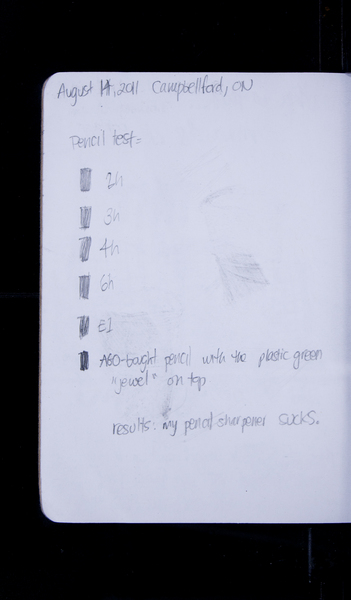 August 14, 2011 Campbellford, ON
Pencil test=
2h
3h
4h
6h
EI
AGO-bought pencil with the plastic green
"jewel" on top
results: my pencil sharpener sucks.